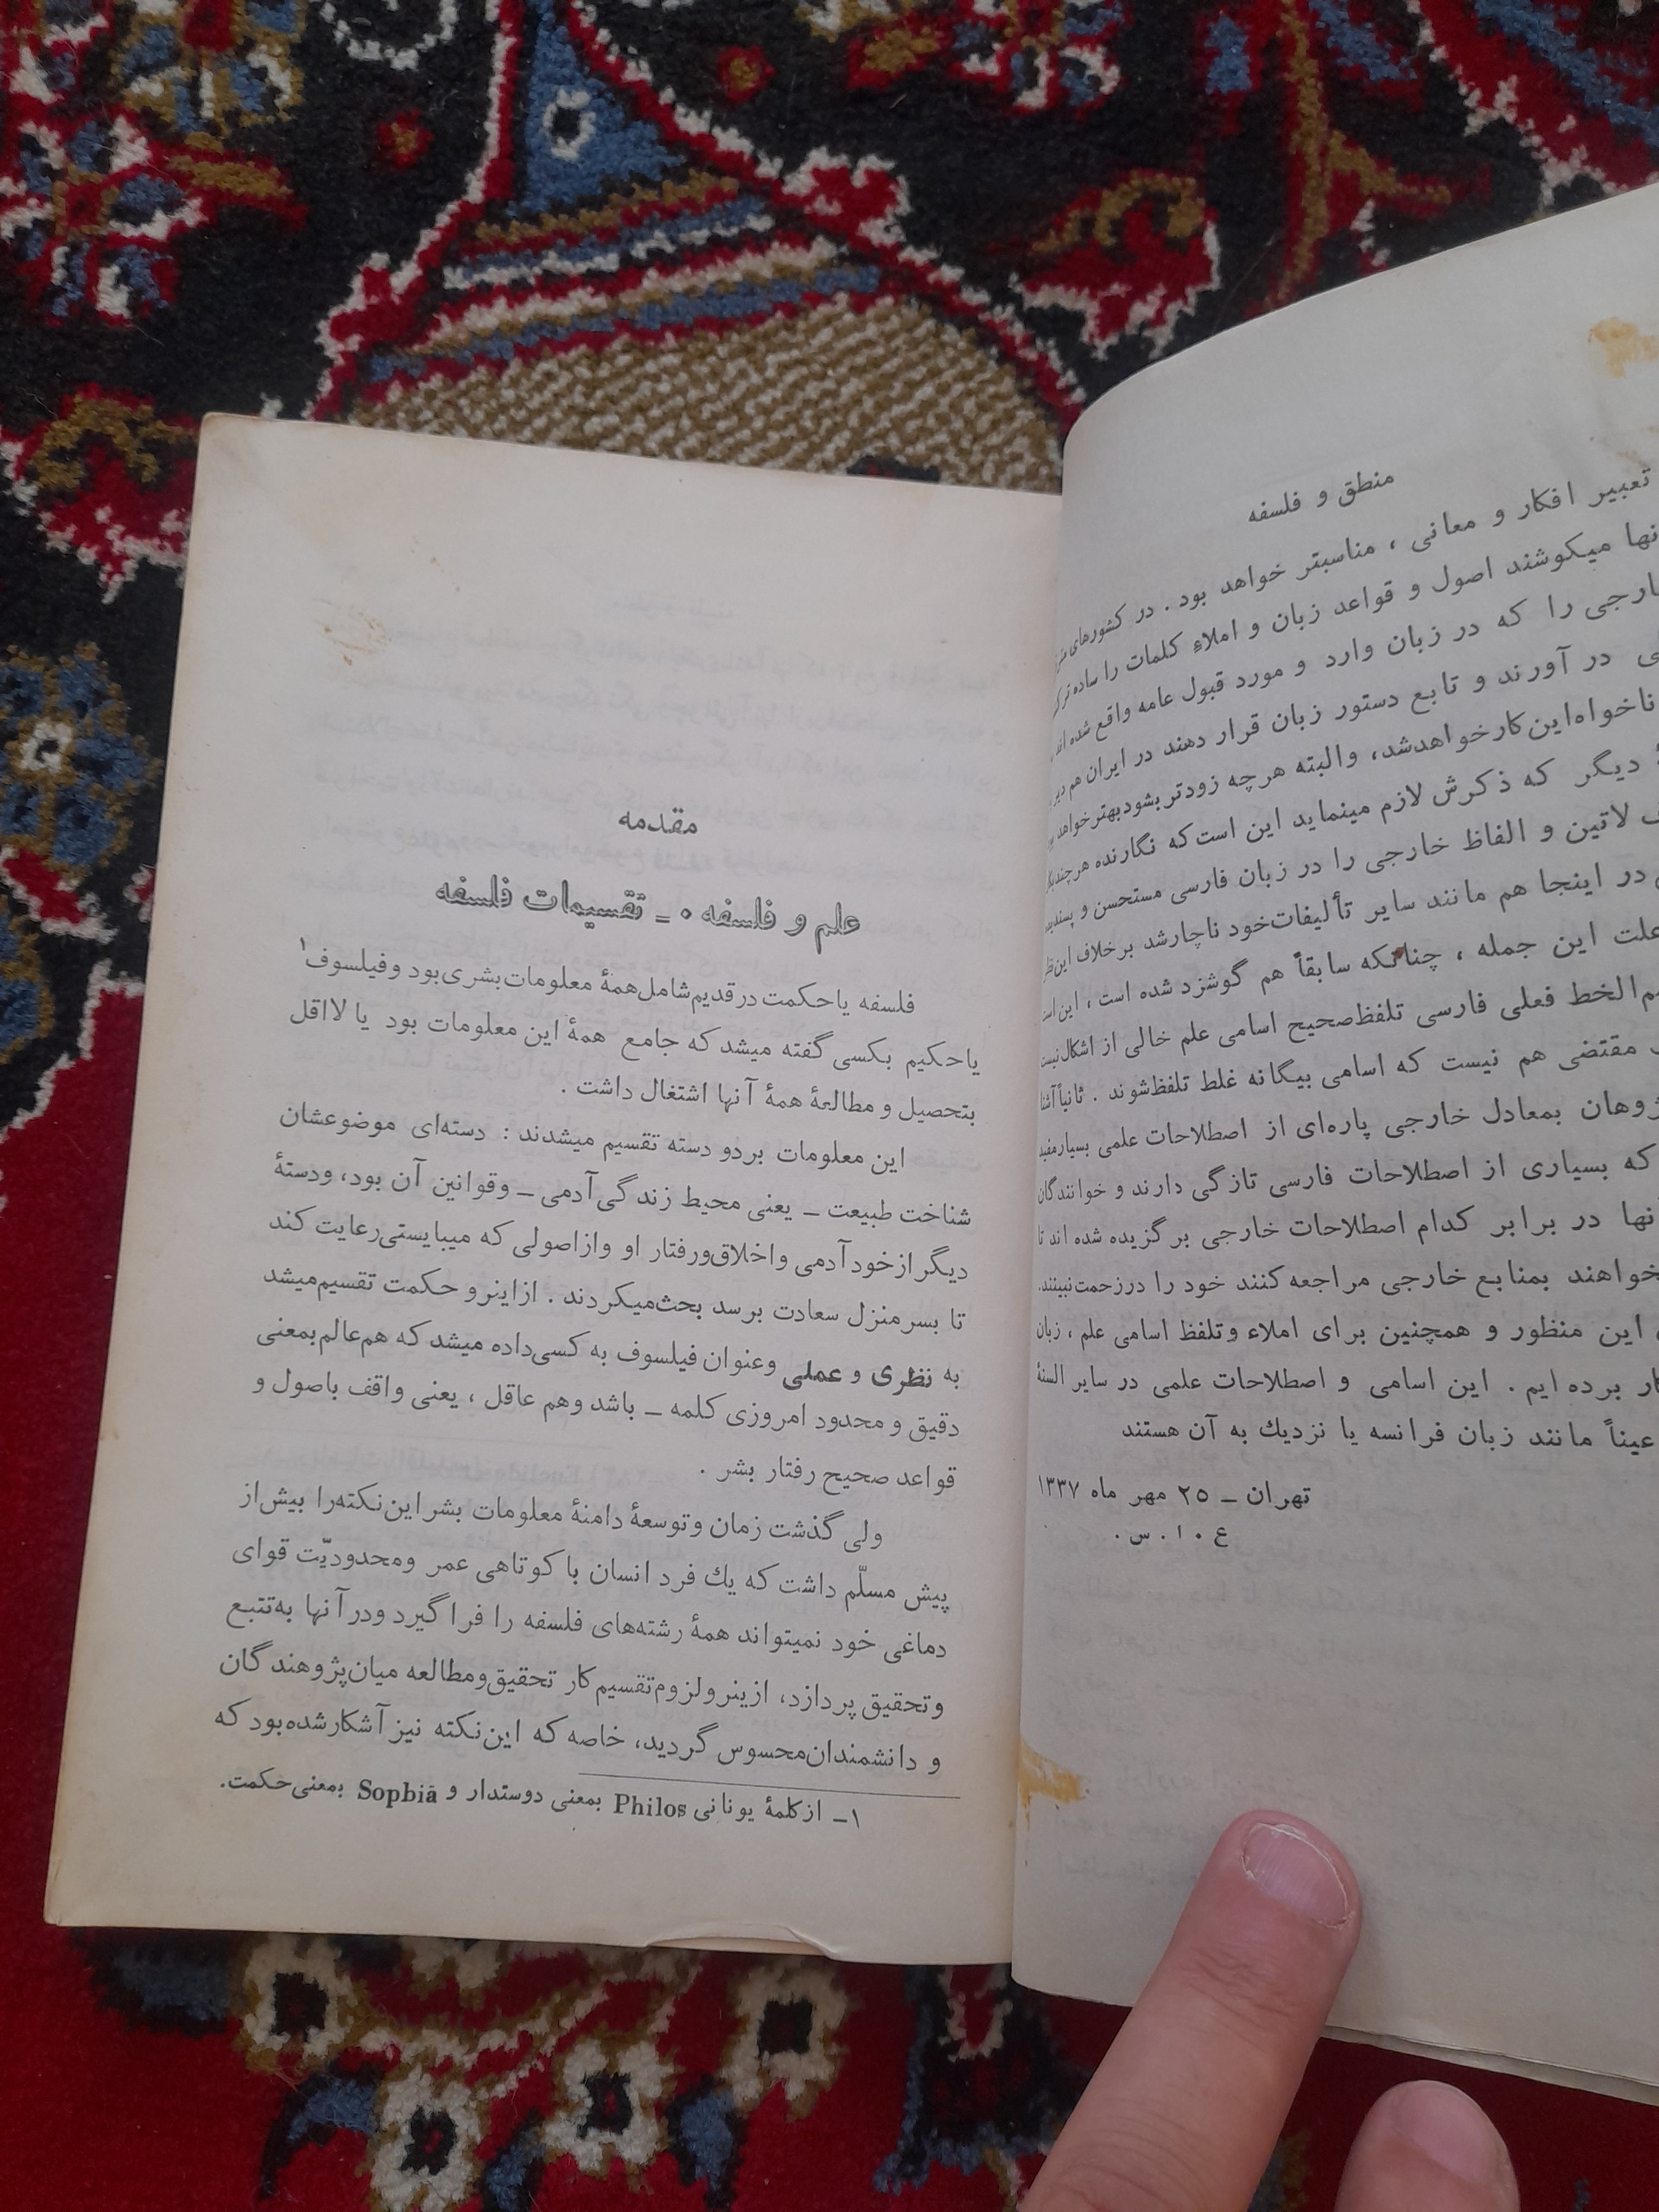 منطق و فلسفه
تعبیر افکار و معانی ، مناسبتر خواهد بود . در کشورهای
میکوشند اصول و قواعد زبان و املاء کلمات را ساده‌تر
را که در زبان وارد و مورد قبول عامه واقع شده اند
در آورند و تابع دستور زبان قرار دهند در ایران هم دیر
ناخواه این کار خواهد شد، والبته هرچه زودتر بشود بهتر خواهد
دیگر که ذکرش لازم مینماید این است که نگارنده هرچند
لاتین و الفاظ خارجی را در زبان فارسی مستحسن و
در اینجا هم مانند سایر تألیفات خود ناچار شد برخلاف این
علت این جمله ، چنانکه سابقاً هم گوشزد شده است ، این
الخط فعلی فارسی تلفظ صحیح اسامی علم خالی از اشکال نیست
مقتضی هم نیست که اسامی بیگانه غلط تلفظ شوند . ثانیاً
بمعادل خارجی پاره‌ای از اصطلاحات علمی بسیار مفید
که بسیاری از اصطلاحات فارسی تازگی دارند و خوانندگان
در برابر کدام اصطلاحات خارجی برگزیده شده اند تا
بمنابع خارجی مراجعه کنند خود را در زحمت نبینند.
این منظور و همچنین برای املاء و تلفظ اسامی علم ، زبان
برده ایم . این اسامی و اصطلاحات علمی در سایر السنهٔ
عیناً مانند زبان فرانسه یا نزدیك به آن هستند
تهران ـ ۲۵ مهر ماه ۱۳۳۷
ع . ا . س .
مقدمه
علم و فلسفه . ـ تقسیمات فلسفه
فلسفه یا حکمت در قدیم شامل همهٔ معلومات بشری بود و فیلسوف۱
یا حکیم بکسی گفته میشد که جامع همهٔ این معلومات بود یا لااقل
بتحصیل و مطالعهٔ همهٔ آنها اشتغال داشت .
این معلومات بر دو دسته تقسیم میشدند : دسته‌ای موضوعشان
شناخت طبیعت ـ یعنی محیط زندگی آدمی ـ و قوانین آن بود، و دستهٔ
دیگر از خود آدمی و اخلاق و رفتار او و از اصولی که میبایستی رعایت کند
تا بسر منزل سعادت برسد بحث میکردند . از اینرو حکمت تقسیم میشد
به نظری و عملی و عنوان فیلسوف به کسی داده میشد که هم عالم بمعنی
دقیق و محدود امروزی کلمه ـ باشد و هم عاقل ، یعنی واقف باصول و
قواعد صحیح رفتار بشر .
ولی گذشت زمان و توسعهٔ دامنهٔ معلومات بشر این نکته را بیش از
پیش مسلّم داشت که یك فرد انسان با کوتاهی عمر و محدودیّت قوای
دماغی خود نمیتواند همهٔ رشته‌های فلسفه را فرا گیرد و در آنها به تتبع
و تحقیق پردازد، ازینرو لزوم تقسیم کار تحقیق و مطالعه میان پژوهندگان
و دانشمندان محسوس گردید، خاصه که این نکته نیز آشکار شده بود که
۱ـ از کلمهٔ یونانی Philos بمعنی دوستدار و Sophia بمعنی حکمت.